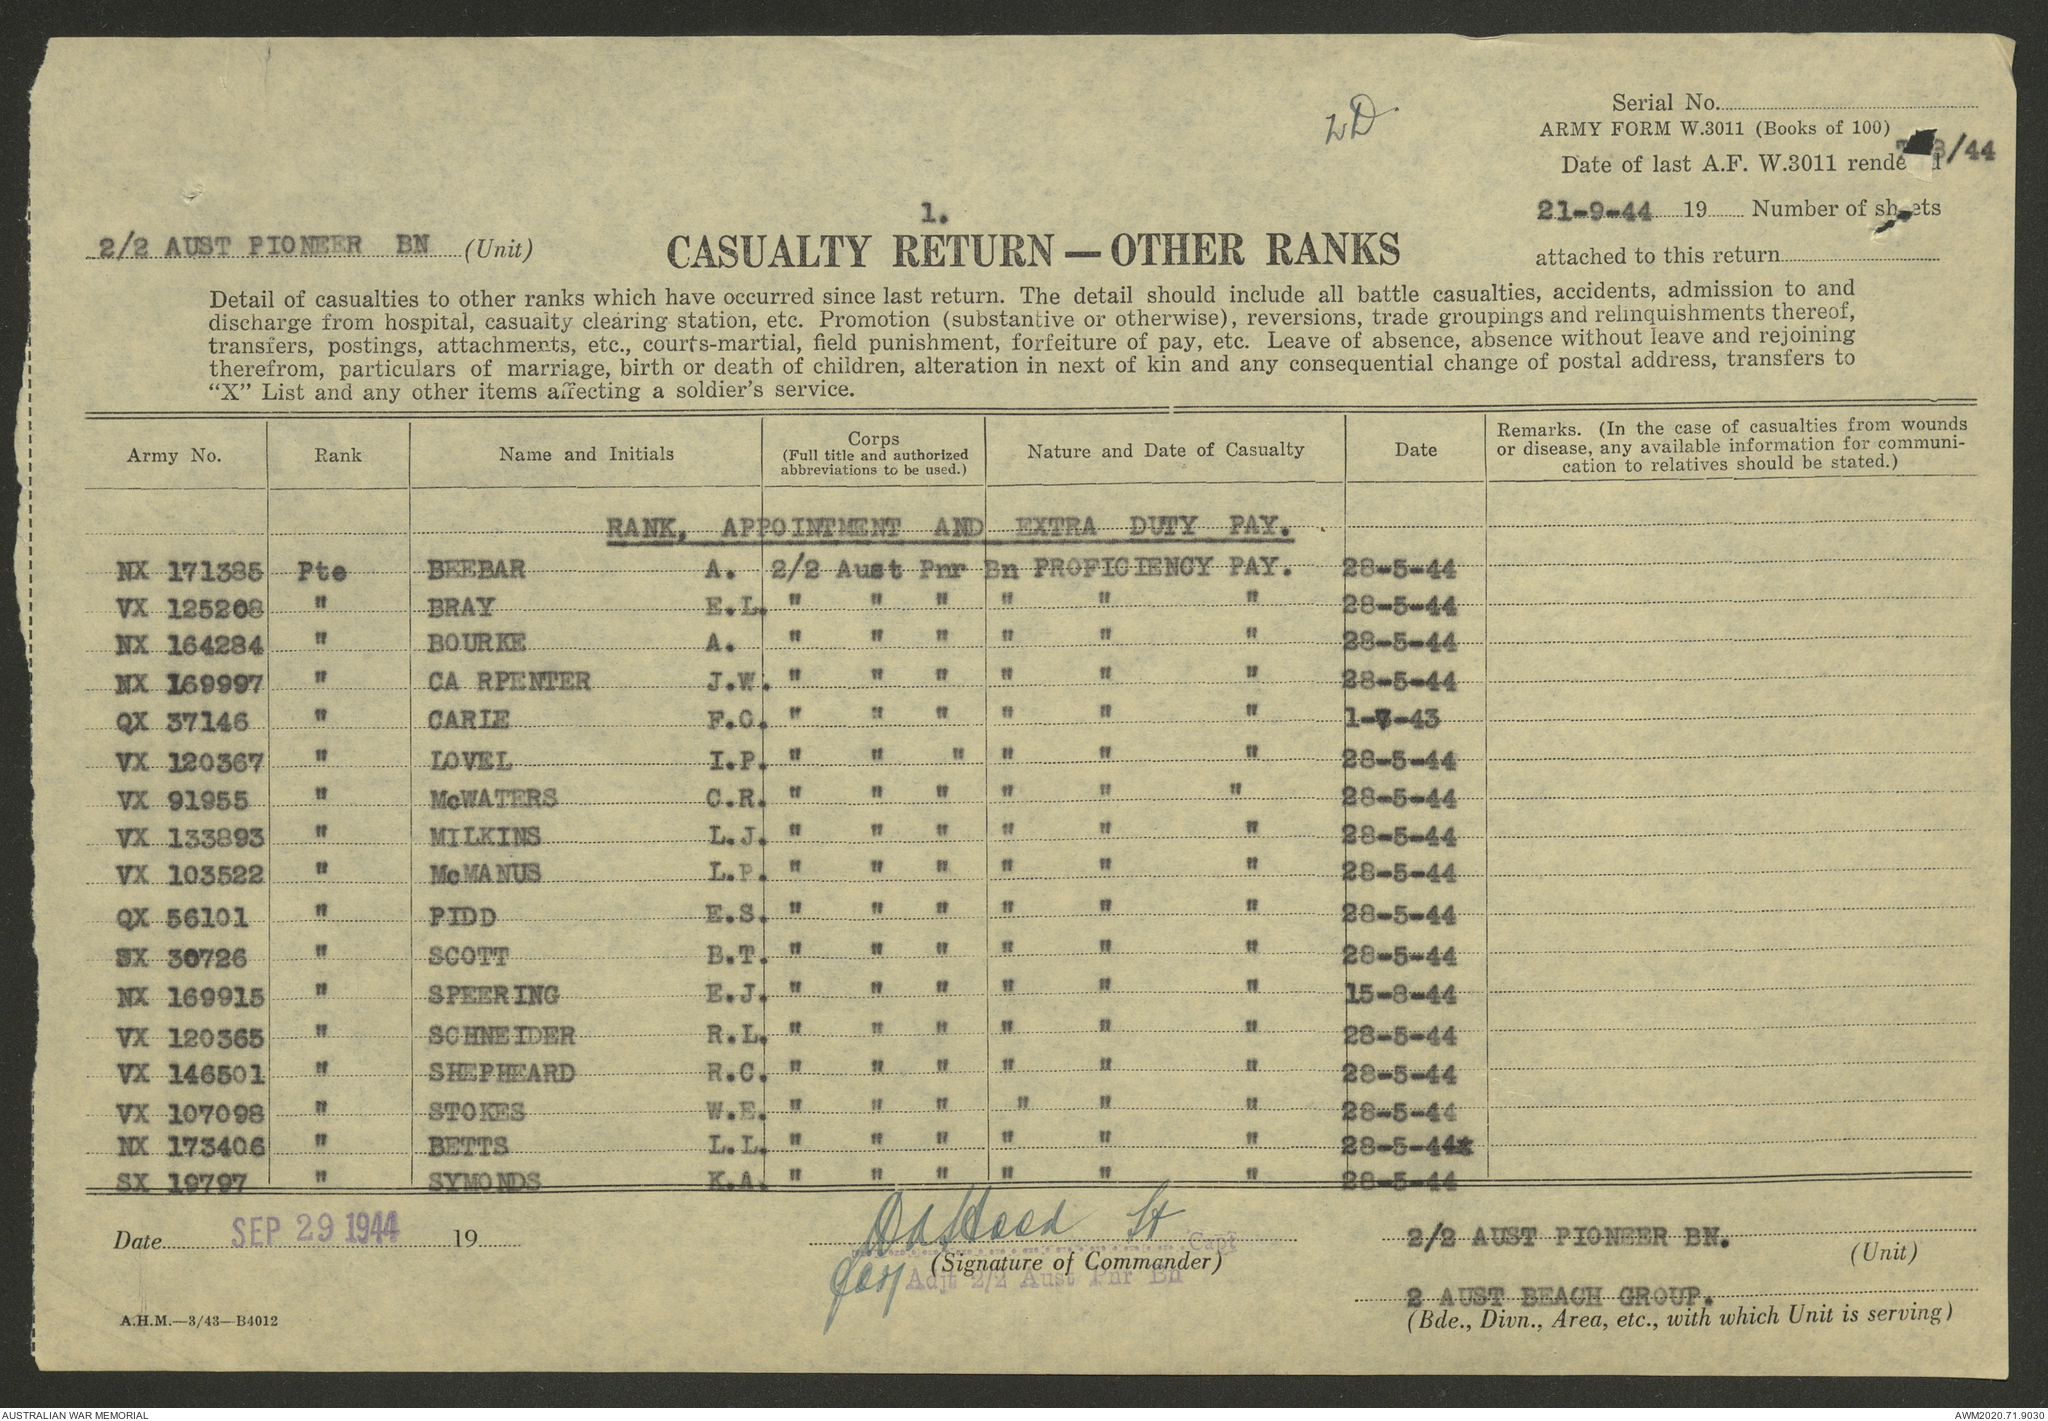 2D
Serial No.
ARMY FORM W.3011 (Books of 100)
Date of last A.F. W.3011 rende d /44
21-9-44 19 Number of sheets
attached to this return
1.
2/2 AUST PIONEER BN (Unit)
CASUALTY RETURN — OTHER RANKS
Detail of casualties to other ranks which have occurred since last return. The detail should include all battle casualties, accidents, admission to and
discharge from hospital, casualty clearing station, etc. Promotion (substantive or otherwise), reversions, trade groupings and relinquishments thereof,
transfers, postings, attachments, etc., courts-martial, field punishment, forfeiture of pay, etc. Leave of absence, absence without leave and rejoining
therefrom, particulars of marriage, birth or death of children, alteration in next of kin and any consequential change of postal address, transfers to
“X” List and any other items affecting a soldier’s service.
Army No. Rank Name and Initials Corps (Full title and authorized abbreviations to be used.) Nature and Date of Casualty Date Remarks. (In the case of casualties from wounds or disease, any available information for communi-cation to relatives should be stated.)
RANK, APPOINTMENT AND EXTRA DUTY PAY.
NX 171385 Pte BEEBAR A. 2/2 Aust Pnr Bn PROFICIENCY PAY. 28-5-44
VX 125208 " BRAY E.L. " " " " " " 28-5-44
NX 164284 " BOURKE A. " " " " " " 28-5-44
NX 169997 " CA RPENTER J.W. " " " " " " 28-5-44
QX 37146 " CARIE F.C. " " " " " " 1-7-43
VX 120367 " LOVEL I.P. " " " " " " 28-5-44
VX 91955 " McWATERS C.R. " " " " " " 28-5-44
VX 133893 " MILKINS L.J. " " " " " " 28-5-44
VX 103522 " McMANUS L.P. " " " " " " 28-5-44
QX 56101 " PIDD E.S. " " " " " " 28-5-44
SX 30726 " SCOTT B.T. " " " " " " 28-5-44
NX 169915 " SPEERING E.J. " " " " " " 15-8-44
VX 120365 " SCHNEIDER R.L. " " " " " " 28-5-44
VX 146501 " SHEPHEARD R.C. " " " " " " 28-5-44
VX 107098 " STOKES W.E. " " " " " " 28-5-44
NX 173406 " BETTS L.L. " " " " " " 28-5-44
SX 19797 " SYMONDS K.A. " " " " " " 28-5-44
Date SEP 29 1944 19
Hood Lt
Capt
(Signature of Commander)
for Adjt 2/2 Aust Pnr Bn
2/2 AUST PIONEER BN.
(Unit)
2 AUST BEACH GROUP.
(Bde., Divn., Area, etc., with which Unit is serving)
A.H.M.—3/43—B4012
AUSTRALIAN WAR MEMORIAL
AWM2020.71.9030